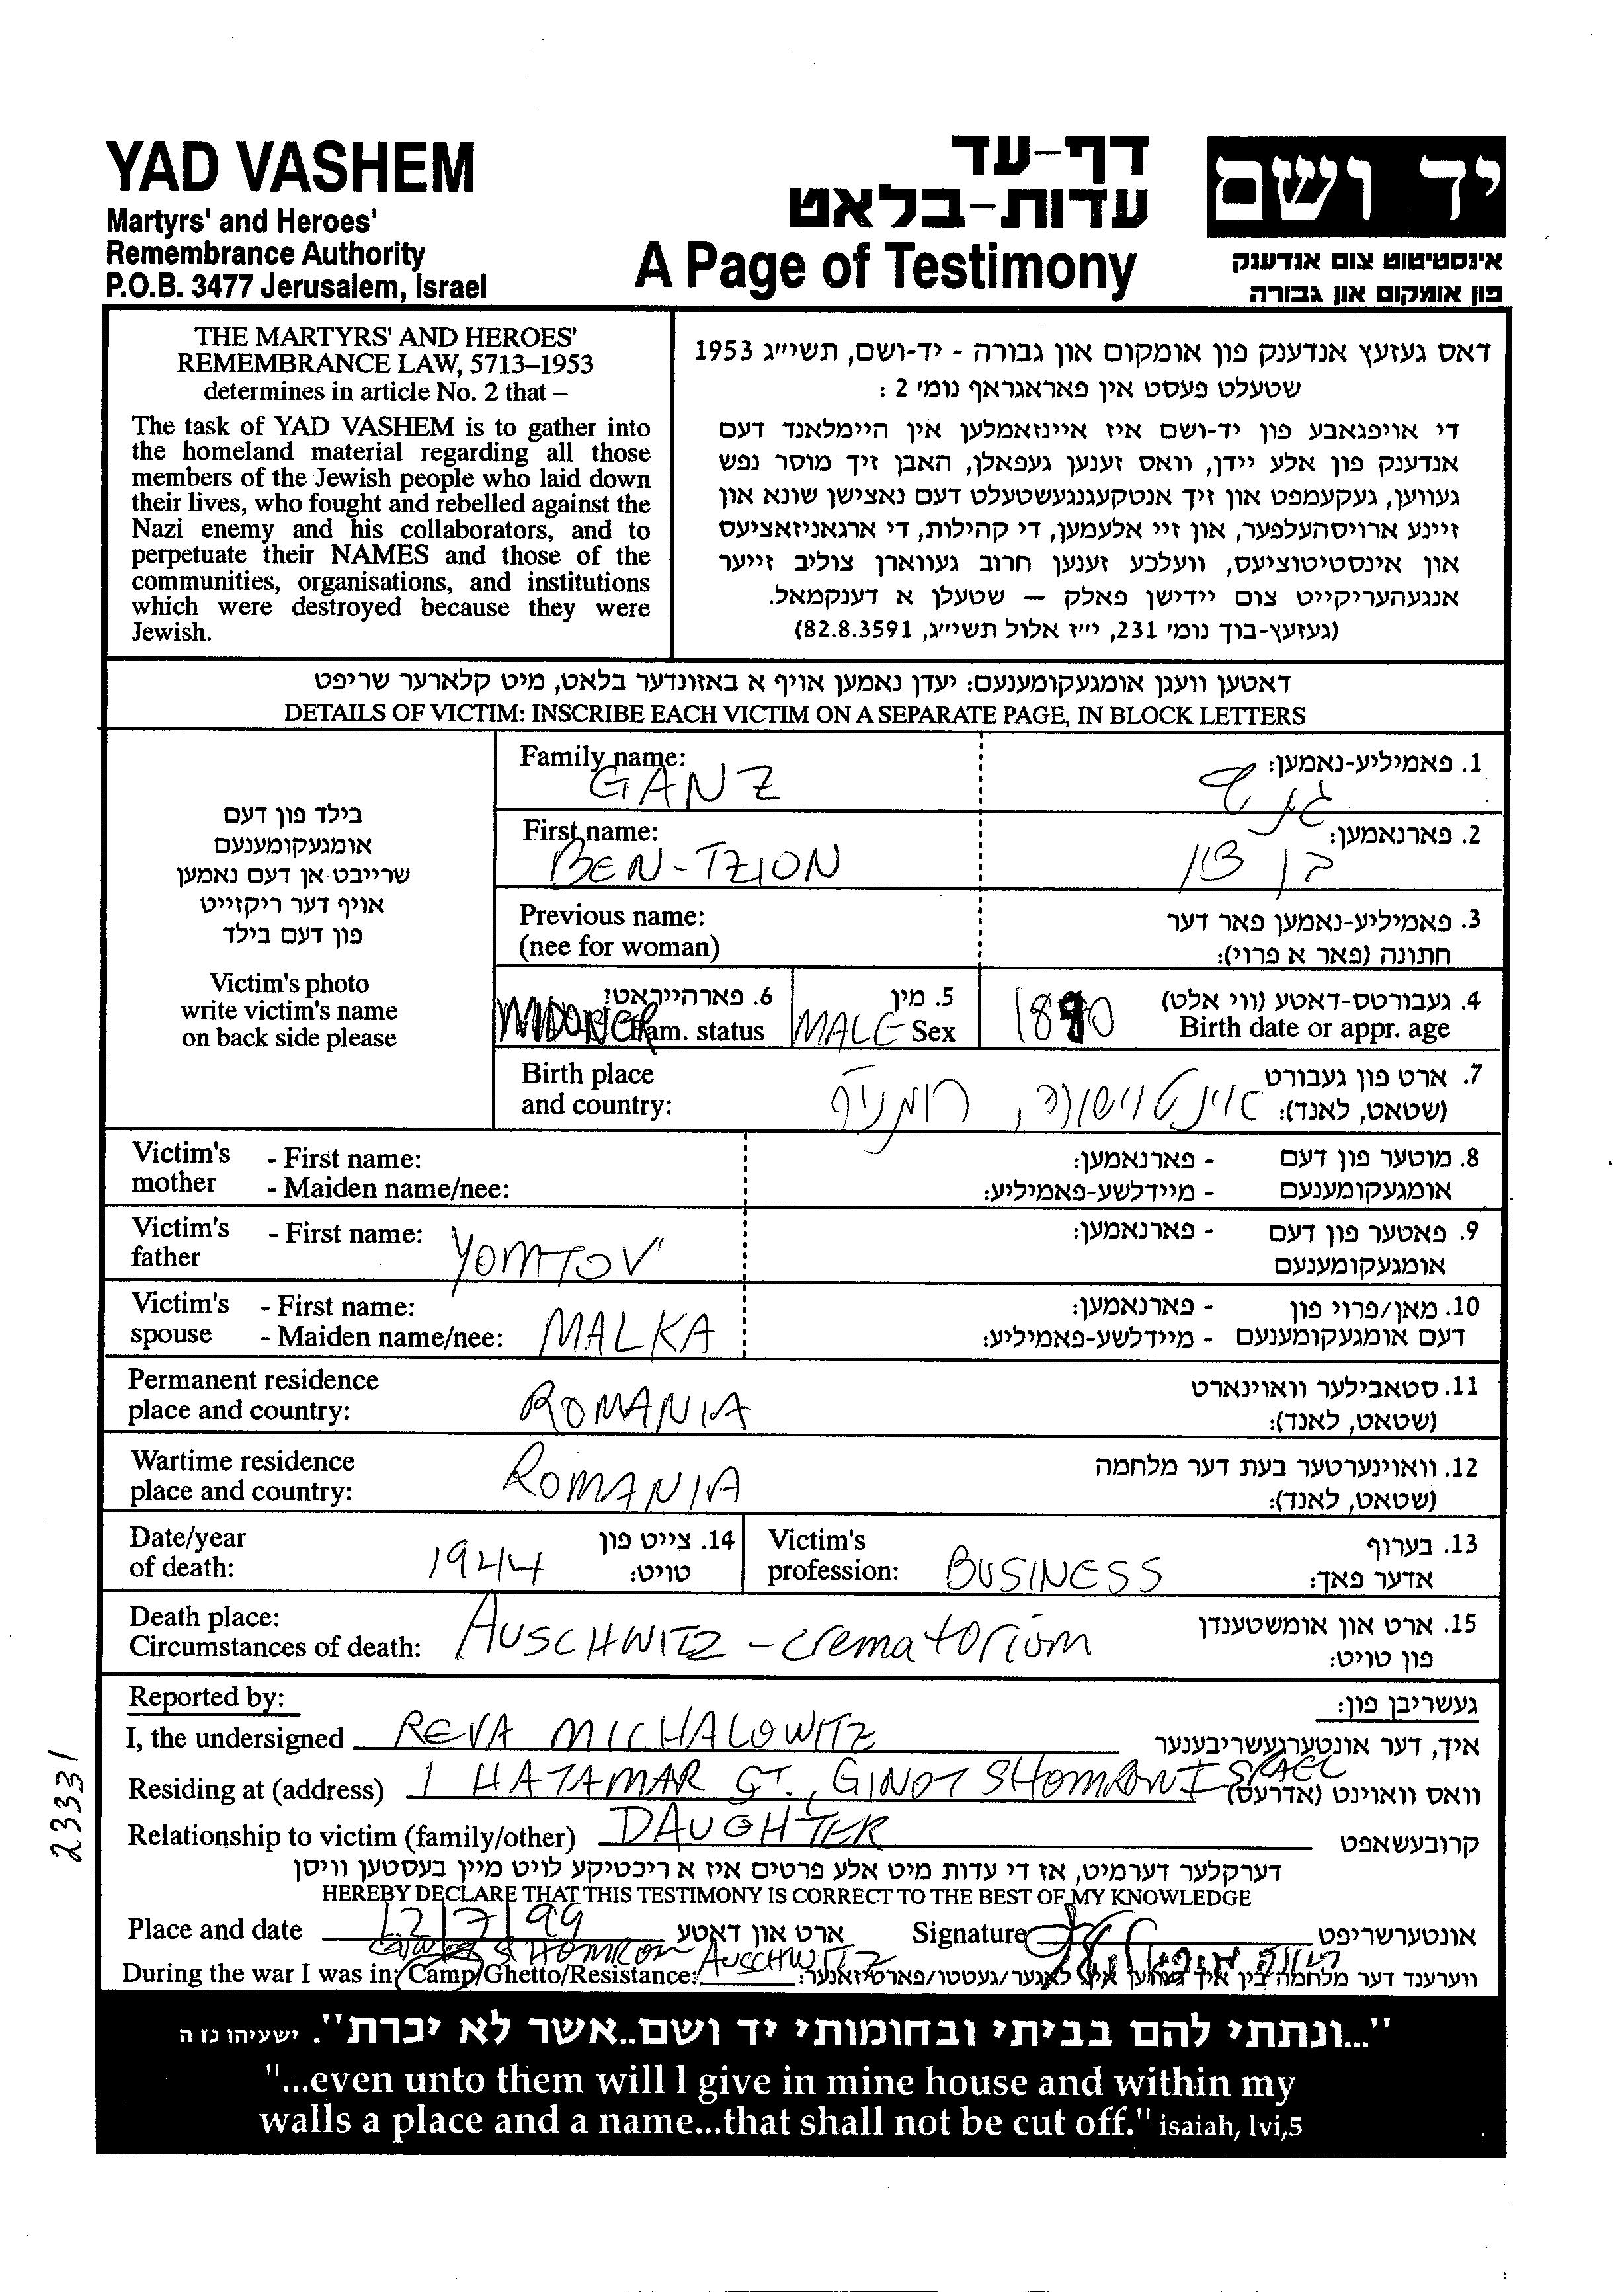 YAD VASHEM
Martyrs' and Heroes'
Remembrance Authority
P.O.B. 3477 Jerusalem, Israel
דף-עד
עדות-בלאט
A Page of Testimony
יד ושם
אינסטיטוט צום אנדענק
פון אומקום און גבורה
THE MARTYRS' AND HEROES'
REMEMBRANCE LAW, 5713–1953
determines in article No. 2 that –
The task of YAD VASHEM is to gather into
the homeland material regarding all those
members of the Jewish people who laid down
their lives, who fought and rebelled against the
Nazi enemy and his collaborators, and to
perpetuate their NAMES and those of the
communities, organisations, and institutions
which were destroyed because they were
Jewish.
דאס געזעץ אנדענק פון אומקום און גבורה - יד-ושם, תשי״ג 1953
שטעלט פעסט אין פאראגראף נומ׳ 2 :
די אויפגאבע פון יד-ושם איז איינזאמלען אין היימלאנד דעם
אנדענק פון אלע יידן, וואס זענען געפאלן, האבן זיך מוסר נפש
געווען, געקעמפט און זיך אנטקעגנגעשטעלט דעם נאצישן שונא און
זיינע ארויסהעלפער, און זיי אלעמען, די קהילות, די ארגאניזאציעס
און אינסטיטוציעס, וועלכע זענען חרוב געווארן צוליב זייער
אנגעהעריקייט צום יידישן פאלק — שטעלן א דענקמאל.
(געזעץ-בוך נומ׳ 231, י״ז אלול תשי״ג, 82.8.3591)
דאטען וועגן אומגעקומענעם: יעדן נאמען אויף א באזונדער בלאט, מיט קלארער שריפט
DETAILS OF VICTIM: INSCRIBE EACH VICTIM ON A SEPARATE PAGE, IN BLOCK LETTERS
בילד פון דעם
אומגעקומענעם
שרייבט אן דעם נאמען
אויף דער ריקזייט
פון דעם בילד
Victim's photo
write victim's name
on back side please
Family name: GANZ
1. פאמיליע-נאמען:
First name: BEN-TZION
2. פארנאמען: בן ציון
Previous name:
(nee for woman)
3. פאמיליע-נאמען פאר דער
חתונה (פאר א פרוי):
6. פארהייראט?
Fam. status
5. מין
MALE Sex
4. געבורטס-דאטע (ווי אלט)
Birth date or appr. age
Birth place
and country:
7. ארט פון געבורט
(שטאט, לאנד):
Victim's - First name:
mother - Maiden name/nee:
8. מוטער פון דעם - פארנאמען:
אומגעקומענעם - מיידלשע-פאמיליע:
Victim's - First name: YOMTOV
father
9. פאטער פון דעם - פארנאמען:
אומגעקומענעם
Victim's - First name:
spouse - Maiden name/nee: MALKA
10. מאן/פרוי פון - פארנאמען:
דעם אומגעקומענעם - מיידלשע-פאמיליע:
Permanent residence
place and country: ROMANIA
11. סטאבילער וואוינארט
(שטאט, לאנד):
Wartime residence
place and country: ROMANIA
12. וואוינערטער בעת דער מלחמה
(שטאט, לאנד):
Date/year
of death: 1944
14. צייט פון
טויט:
Victim's
profession: BUSINESS
13. בערוף
אדער פאך:
Death place:
Circumstances of death: AUSCHWITZ – crematorium
15. ארט און אומשטענדן
פון טויט:
Reported by:
געשריבן פון:
I, the undersigned REVA MICHALOWITZ איך, דער אונטערגעשריבענער
Residing at (address) 1 HATAMAR ST., GINOT SHOMRON ISRAEL וואס וואוינט (אדרעס)
Relationship to victim (family/other) DAUGHTER קרובעשאפט
דערקלער דערמיט, אז די עדות מיט אלע פרטים איז א ריכטיקע לויט מיין בעסטען וויסן
HEREBY DECLARE THAT THIS TESTIMONY IS CORRECT TO THE BEST OF MY KNOWLEDGE
Place and date 12/7/99 ארט און דאטע Signature אונטערשריפט
SHOMRON
During the war I was in: Camp/Ghetto/Resistance: AUSCHWITZ ווערענד דער מלחמה בין איך געווען אין לאגער/געטטו/פארטיזאנער:
23331
"...ונתתי להם בביתי ובחומותי יד ושם..אשר לא יכרת". ישעיהו נז ה
"...even unto them will I give in mine house and within my
walls a place and a name...that shall not be cut off." isaiah, lvi,5